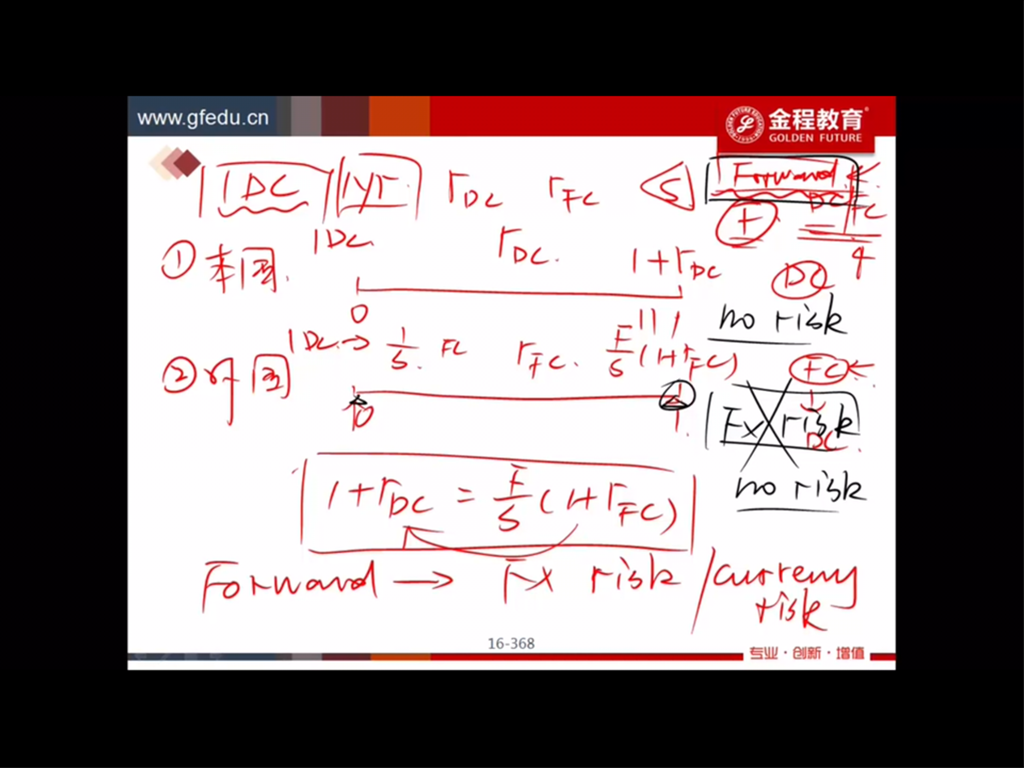 www.gfedu.cn
金程教育
GOLDEN FUTURE
1DC 1yr. rDC rFC S Forward
F DC/FC
① 本国. 1DC rDC. 1+rDC DC
0 1 no risk
② 外国 1DC→ 1/S. FC rFC. F/S(1+rFC) FC
0 1. FX risk
DC.
no risk
1+rDC = F/S(1+rFC)
Forward → FX risk / currency risk
16-368
专业·创新·增值